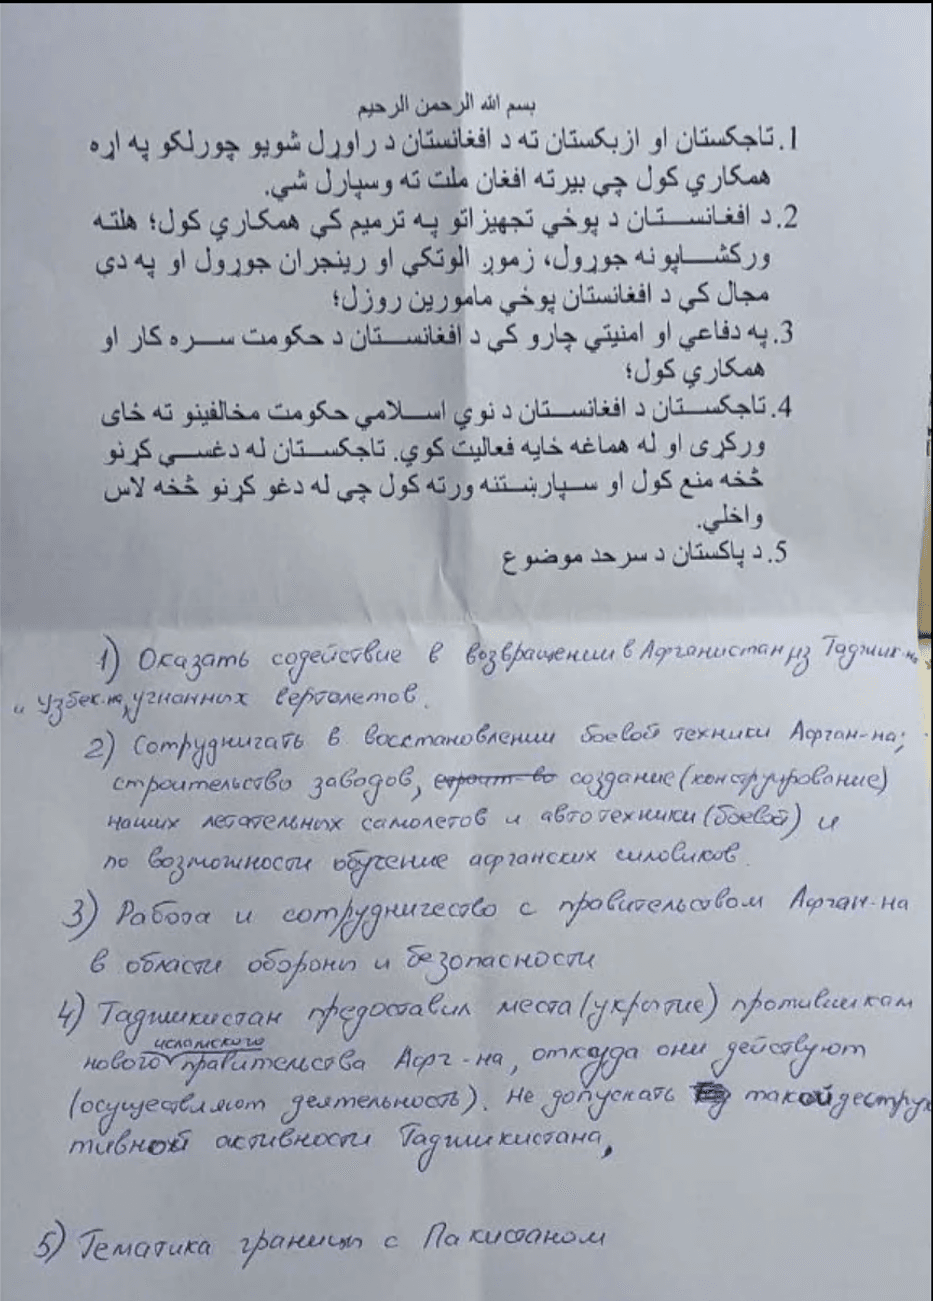 بسم الله الرحمن الرحيم
1. تاجکستان او ازبکستان ته د افغانستان د راوړل شويو چورلکو په اړه
همکاري کول چې بيرته افغان ملت ته وسپارل شي.
2. د افغانستان د پوځي تجهيزاتو په ترميم کې همکاري کول؛ هلته
ورکشاپونه جوړول، زموږ الوتکې او رينجران جوړول او په دې
مجال کې د افغانستان پوځي مامورين روزل؛
3. په دفاعي او امنيتي چارو کې د افغانستان د حکومت سره کار او
همکاري کول؛
4. تاجکستان د افغانستان د نوي اسلامي حکومت مخالفينو ته ځای
ورکړی او له هماغه ځايه فعاليت کوي. تاجکستان له دغسې کړنو
څخه منع کول او سپارښتنه ورته کول چې له دغو کړنو څخه لاس
واخلي.
5. د پاکستان د سرحد موضوع
1) Оказать содействие в возвращении в Афганистан из Таджик-на
и Узбек-на угнанных вертолетов.
2) Сотрудничать в восстановлении боевой техники Афган-на;
строительство заводов, строит-во создание (конструирование)
наших летательных самолетов и автотехники (боевой) и
по возможности обучение афганских силовиков.
3) Работа и сотрудничество с правительством Афган-на
в области обороны и безопасности
4) Таджикистан предоставил места (укрытие) противникам
нового исламского правительства Афг-на, откуда они действуют
(осуществляют деятельность). Не допускать такой деструк
тивной активности Таджикистана,
5) Тематика границы с Пакистаном